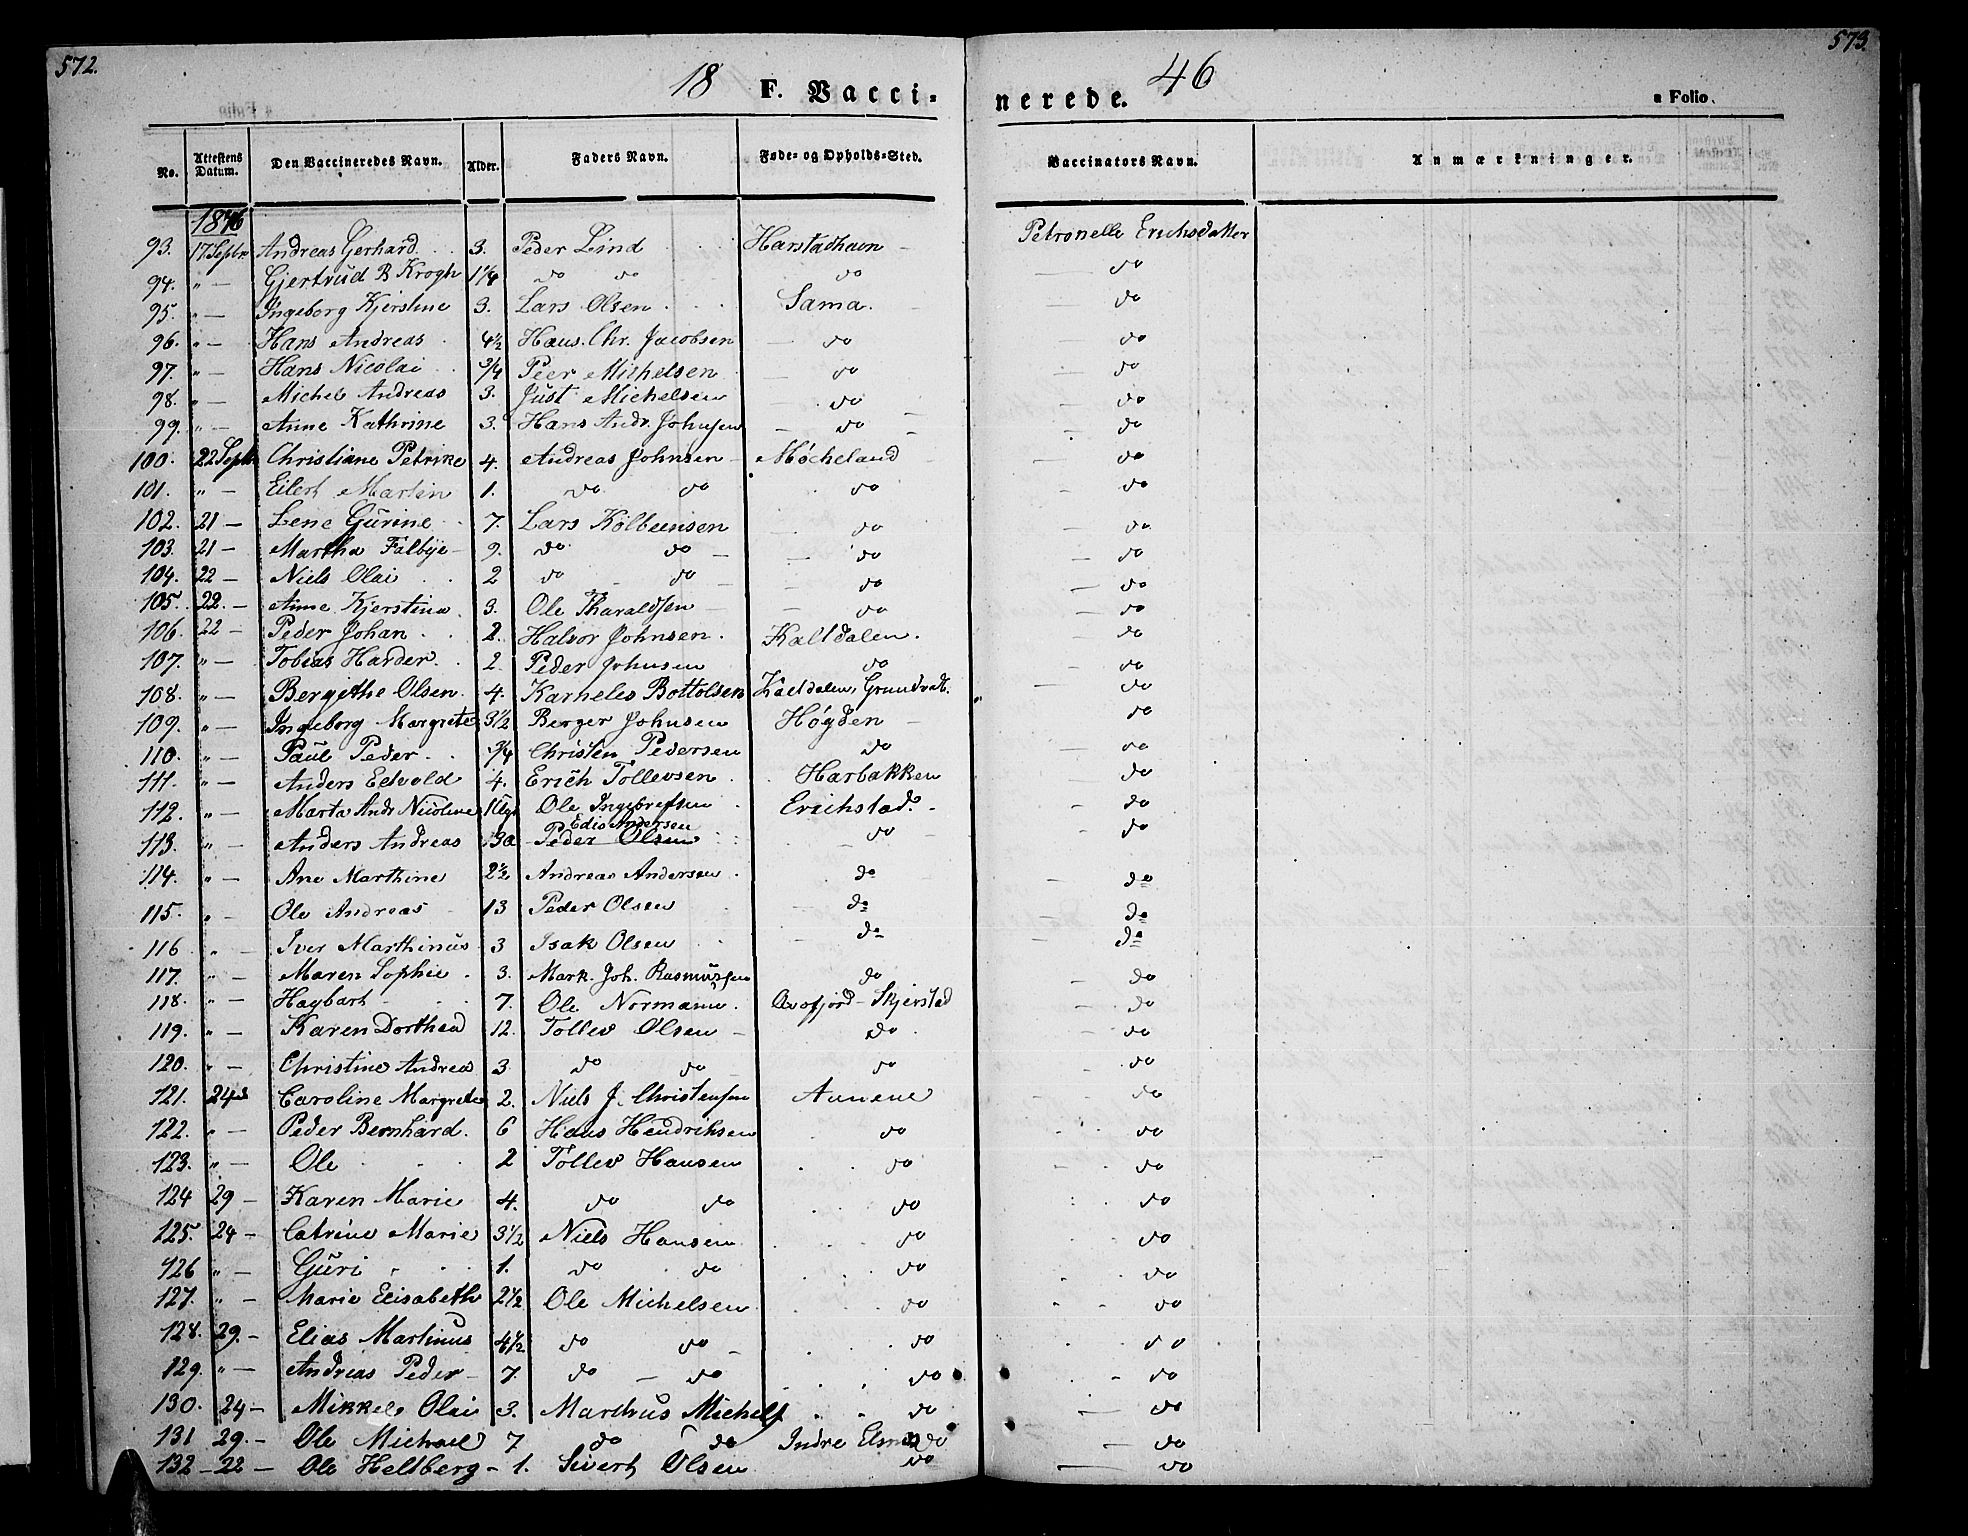 572.
573.
18 F. Vacci-
nerede. 46
a Folio.
No. Attestens Datum. Den Vaccineredes Navn. Alder. Faders Navn. Føde- og Opholds-Sted. Vaccinators Navn. Anmærkninger.
1846
93. 17 Septbr Andreas Gerhard 3. Peder Lind Harstadhavn Petronelle Erichsdatter
94. " — Gjertrud B Krogh 1 1/4 do do do do
95. " — Ingeborg Kjerstine 3. Lars Olsen Sama. do
96. " — Hans Andreas 4 1/2 Hans. Chr. Jacobsen do do
97. " — Hans Nicolai 3/4 Peer Michelsen do do
98. " — Michel Andreas 3. Just Michelsen do do
99. " — Anne Kathrine 3. Hans Andr. Johnsen do do
100. 22 Septbr Christiane Petrike 4. Andreas Johnsen Møcheland do
101. " — Eilert Martin 1. do do do do
102. 21 — Lene Gurine 7. Lars Kolbeensen do do
103. 21 — Martha Falbye 9. do do do do
104. 22 — Niels Olai 2 do do do do
105. 22. — Anne Kjerstina 3. Ole Tharaldsen do do
106. 22 — Peder Johan 2. Halvor Johnsen. Kaltdalen. do
107. " — Tobias Harder. 2. Peder Johnsen do do
108. " — Bergithe Olsen. 4. Karneles Bottolsen Kaltdalen, do
109. " — Ingeborg Margrete 3 1/2 Berger Johnsen Høgden do
110. " — Paul Peder 3/4 Christen Pedersen do do
111. " — Anders Edvold 4. Erich Tollevsen Harbakken do
112. " — Marta Andr Nicoline Ole Ingebretsen Erichstad. do
113. " — Anders Andreas Edis Andersen Peder Olsen do do
114. " — Ane Marthine 2 1/2 Andreas Andersen do do
115. " — Ole Andreas 13 Peder Olsen do do
116 " — Iver Marthinus 3 Isak Olsen do do
117. " — Maren Sophie 3. Mark. Joh. Rasmussen do do
118. " — Hagbart 7. Ole Normann Qvæfjord - Skjerstad do
119. " — Karen Dorthea 12. Tollev Olsen do do
120. " — Christine Andreas 3. do do do do
121. 24de Caroline Margrete 2. Niels J. Christensen Aunene do
122. " — Peder Bernhard. 6 Hans Hendriksen do do
123. " — Ole 2 Tollev Hansen do do
124 29 — Karen Marie 4. do do do do
125. 24 — Catrine Marie 3 1/2 Niels Hansen do do
126 " — Guri 1. do do do do
127. " — Marie Elisabeth 2 1/2 Ole Michelsen do do
128. 29. — Elias Martinus 4 1/2 do do do do
129. " — Andreas Peder 7. do do do do
130. 24 — Mikkel Olai 3. Marthus Michels do do
131 29. — Ole Michael 7 do do Indre do do
132 — 22 — Ole Heltberg — 1. Sivert Olsen do do